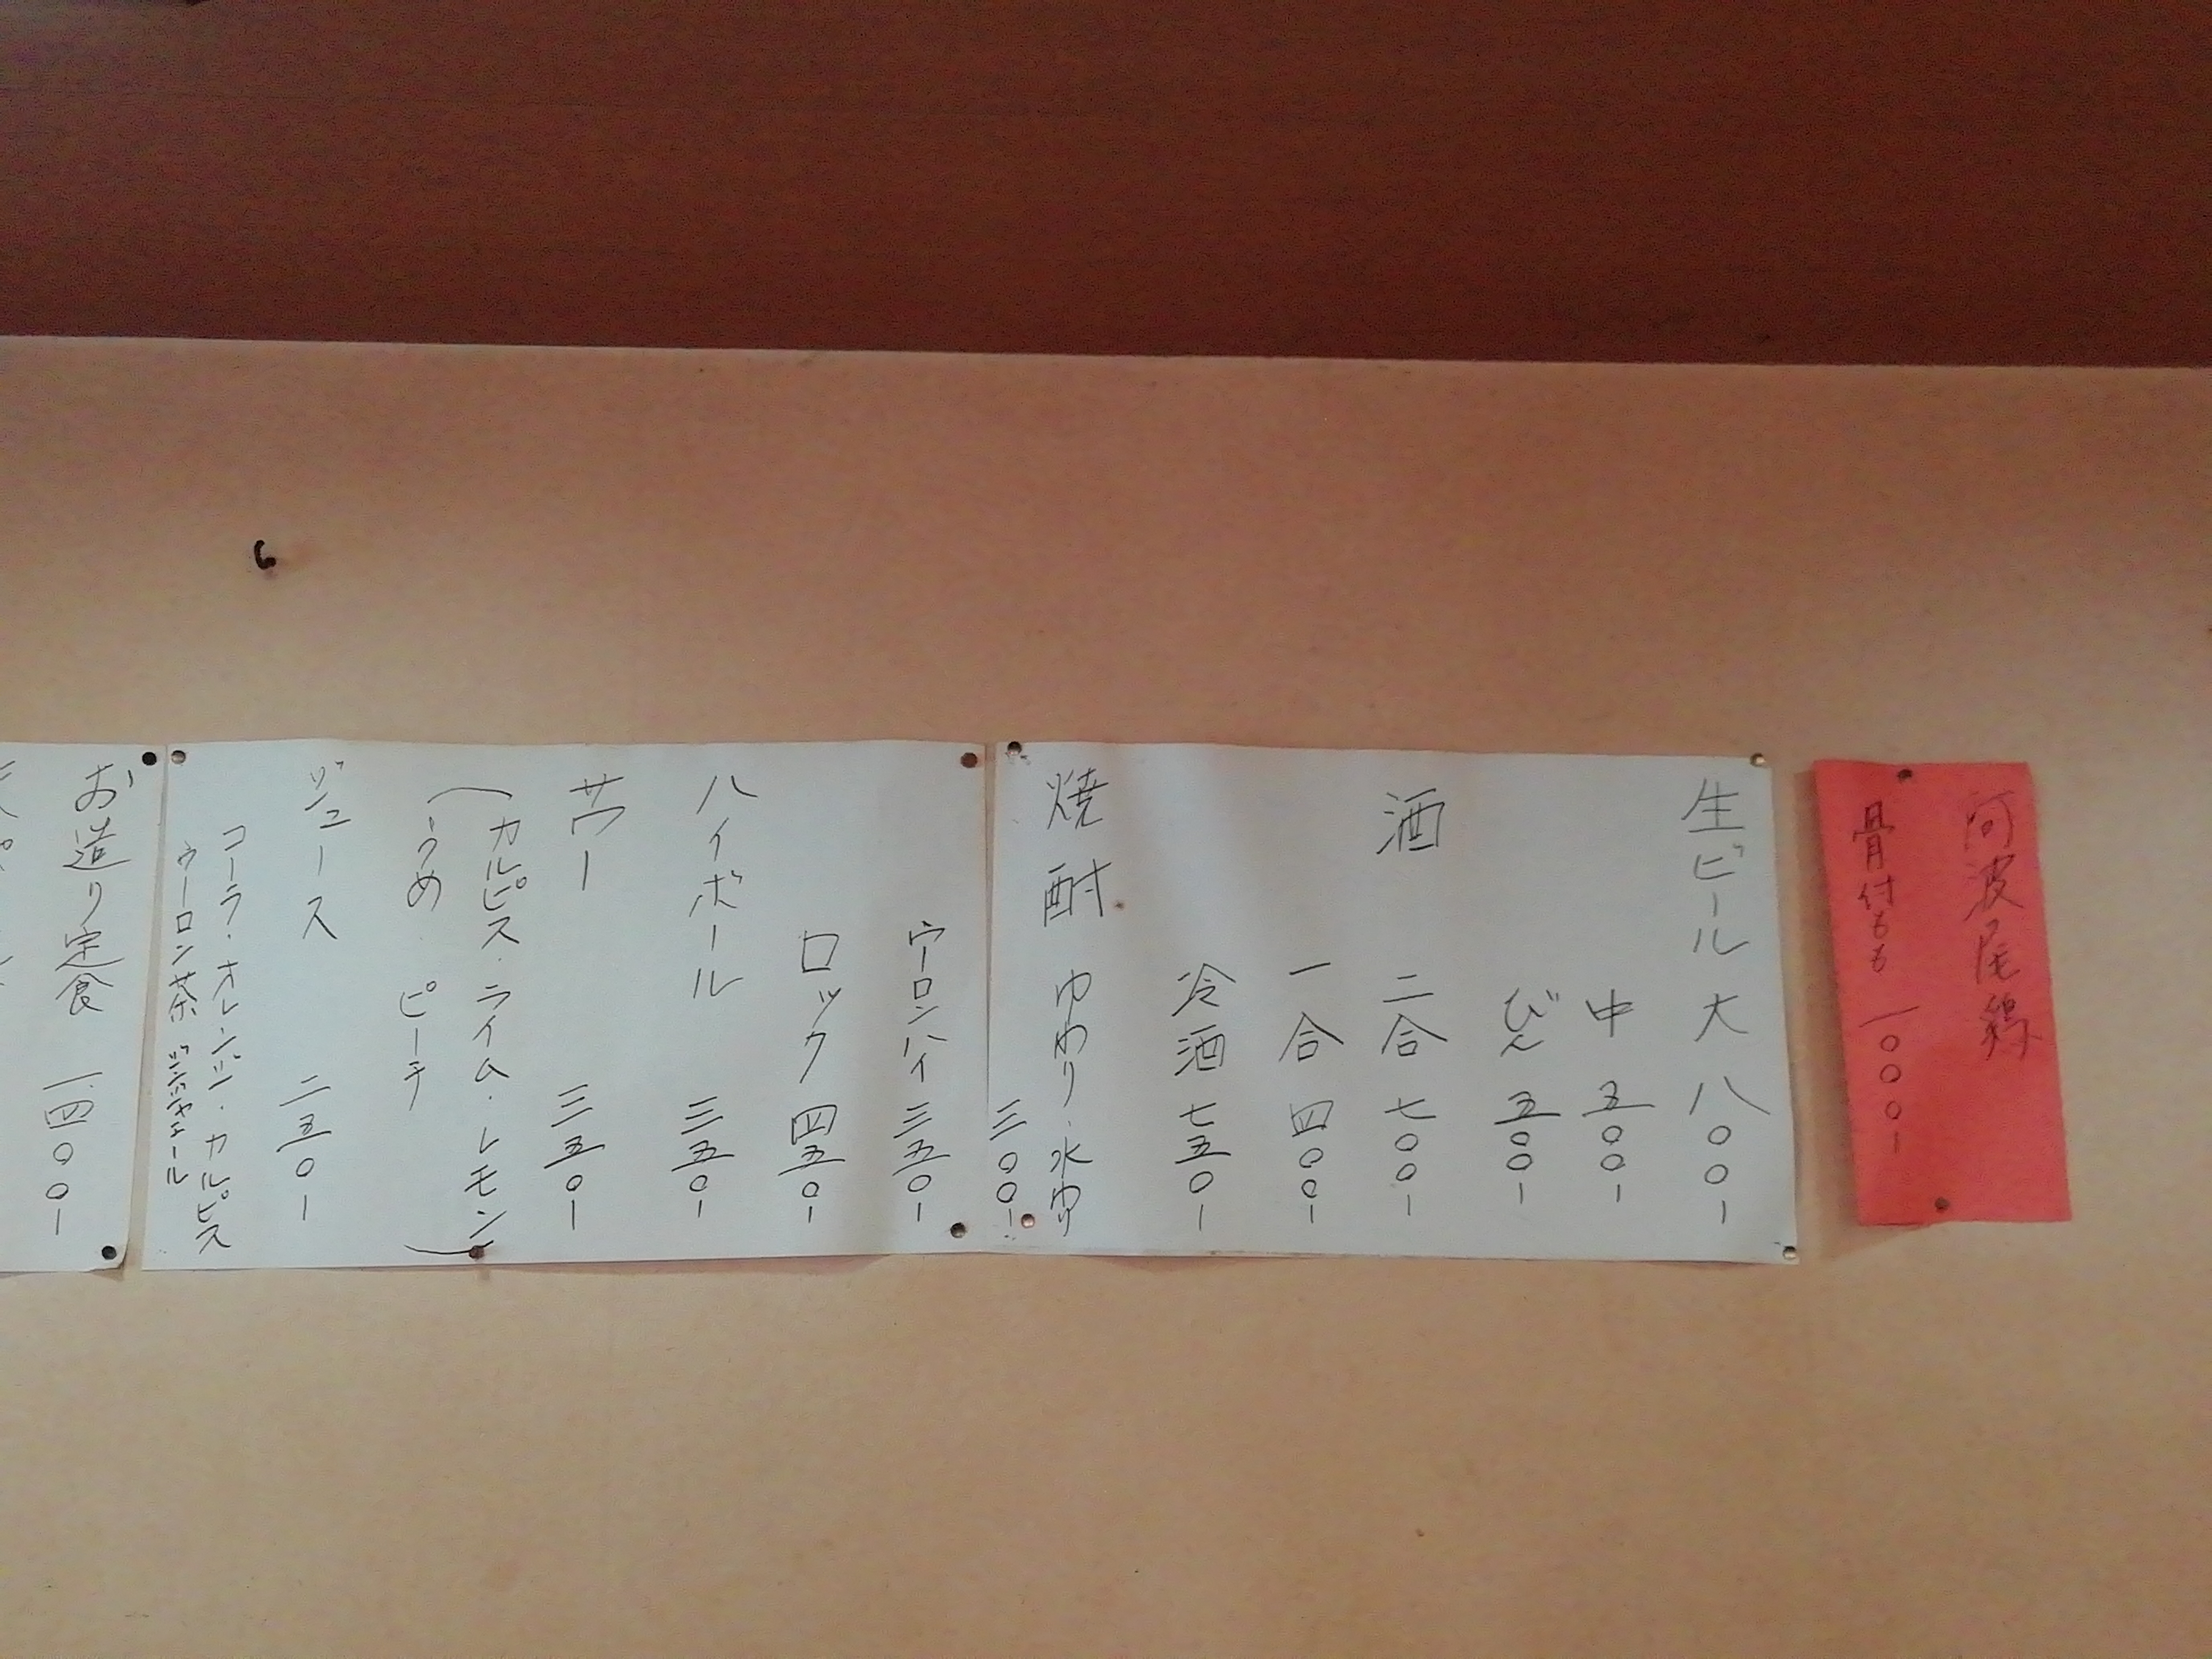 阿波尾鶏
骨付もも 一〇〇〇-
生ビール 大 八〇〇-
中 五〇〇-
びん 五〇〇-
酒 二合 七〇〇-
一合 四〇〇-
冷酒 七五〇-
焼酎 ゆわり・水わり
三〇〇-
ウーロンハイ 三五〇-
ロック 四五〇-
ハイボール 三五〇-
サワー 三五〇-
(カルピス・ライム・レモン
うめ ピーチ)
ジュース 二五〇-
コーラ・オレンジ・カルピス
ウーロン茶 ジンジャエール
お造り定食 一.四〇〇-